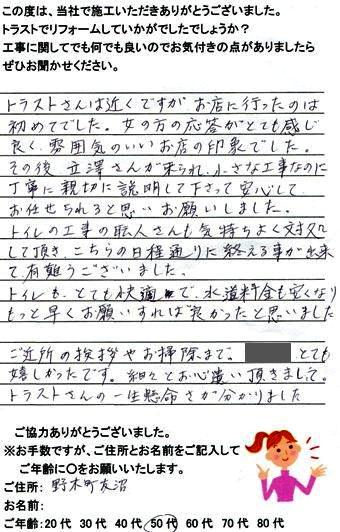 この度は、当社で施工いただきありがとうございました。
トラストでリフォームしていかがでしたでしょうか？
工事に関してでも何でも良いのでお気付きの点がありましたら
ぜひお聞かせください。
トラストさんは近くですがお店に行ったのは
初めてでした。女の方の応答がとても感じ
良く、雰囲気のいいお店の印象でした。
その後 立澤さんが来られ、小さな工事なのに
丁寧に親切に説明して下さって安心して
お任せられると思いお願いしました。
トイレの工事の職人さんも気持ちよく対処
して頂き、こちらの日程通りに終える事が出来
て有難うございました。
トイレも、とても快適で、水道料金も安くなり
もっと早くお願いすれば良かったと思いました
ご近所の挨拶やお掃除まで。 とても
嬉しかったです。細々とお心遣い頂きまして。
トラストさんの一生懸命さが分かりました
ご協力ありがとうございました。
※お手数ですが、ご住所とお名前をご記入して
ご年齢に○をお願いいたします。
ご住所: 野木町友沼
お名前:
ご年齢:20代 30代 40代 50代 60代 70代 80代